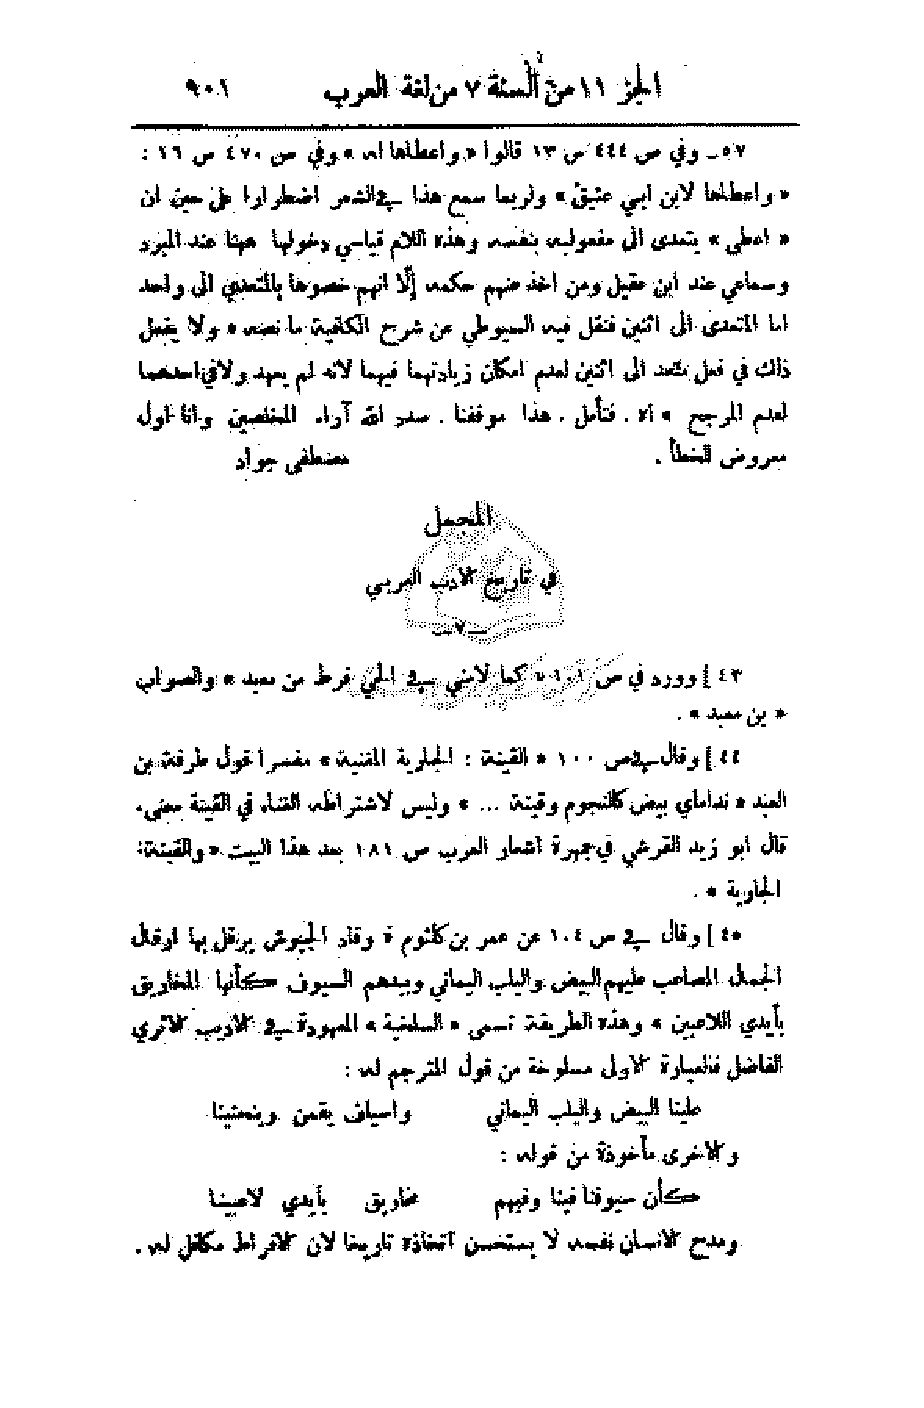 الجزء ١١ من السنة ٧ من لغة العرب ٩٠١
٥٧ـ وفي ص ٤٤٤ س ١٣ قالوا « واعطاها له » وفي ص ٤٧٠ س ١٦ :
« واعطاها لابن ابي عتيق » ولربما سمع هذا في الشعر اضطرارا على حين ان
« اعطى » يتعدى الى مفعوليه بنفسه وهذه اللام قياسي دخولها ههنا عند المبرد
وسماعي عند ابن عقيل ومن اخذ عنهم حكمه إلّا انهم خصوها بالمتعدي الى واحد
اما المتعدى الى اثنين فنقل فيه السيوطي عن شرح الكافية ما نصه « ولا يفعل
ذلك في فعل متعد الى اثنين لعدم امكان زيادتهما فيهما لانه لم يعهد ولا في احدهما
لعدم المرجح » اه . فتأمل . هذا موقفنا . سدد الله آراء المخلصين وانا اول
معروض للخطأ . مصطفى جواد
المجمل
في تاريخ الادب العربي
ـ ٧ ـ
٤٣ ] وورد في ص ١٠١ « كما لامني في الحي قرط من معبد » والصواب
« بن معبد » .
٤٤ ] وقال في ص ١٠٠ « القينة : الجارية المغنية » مفسرا قول طرفة بن
العبد « نداماي بيض كالنجوم وقينة ... » وليس لاشتراطه الغناء في القينة معنى،
قال ابو زيد القرشي في جمهرة اشعار العرب ص ١٨١ بعد هذا البيت « والقينة:
الجارية » .
٤٥ ] وقال في ص ١٠٤ عن عمر بن كلثوم « وقاد الجيوش يرقل بها ارقال
الجمال المصاعب عليهم البيض واليلب اليماني وبيدهم السيوف كأنها المخاريق
بأيدي اللاعبين » وهذه الطريقة تسمى « السلخية » المعهودة في الاديب الاثري
الفاضل فالعبارة الاولى مسلوخة من قول المترجم له :
علينا البيض واليلب اليماني واسياف يقمن وينحنينا
والاخرى مأخوذة من قوله :
كأن سيوفنا فينا وفيهم مخاريق بأيدي لاعبينا
ومدح الانسان نفسه لا يستحسن اتخاذه تاريخا لان الافراط مكافل له .